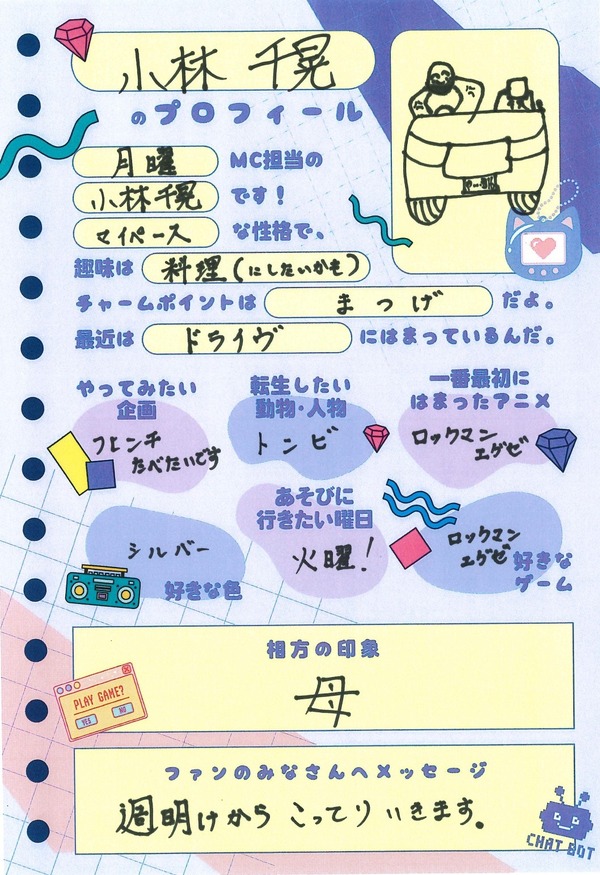 小林 千晃
のプロフィール
月曜 MC担当の
小林千晃 です！
マイペース な性格で、
趣味は 料理(にしたいかも)
チャームポイントは まつげ だよ。
最近は ドライヴ にはまっているんだ。
やってみたい
企画
フレンチ
たべたいです
転生したい
動物・人物
トンビ
一番最初に
はまったアニメ
ロックマン
エグゼ
シルバー
好きな色
あそびに
行きたい曜日
火曜！
ロックマン
エグゼ
好きな
ゲーム
相方の印象
母
PLAY GAME?
YES NO
ファンのみなさんへメッセージ
週明けから こってりいきます。
CHAT BOT